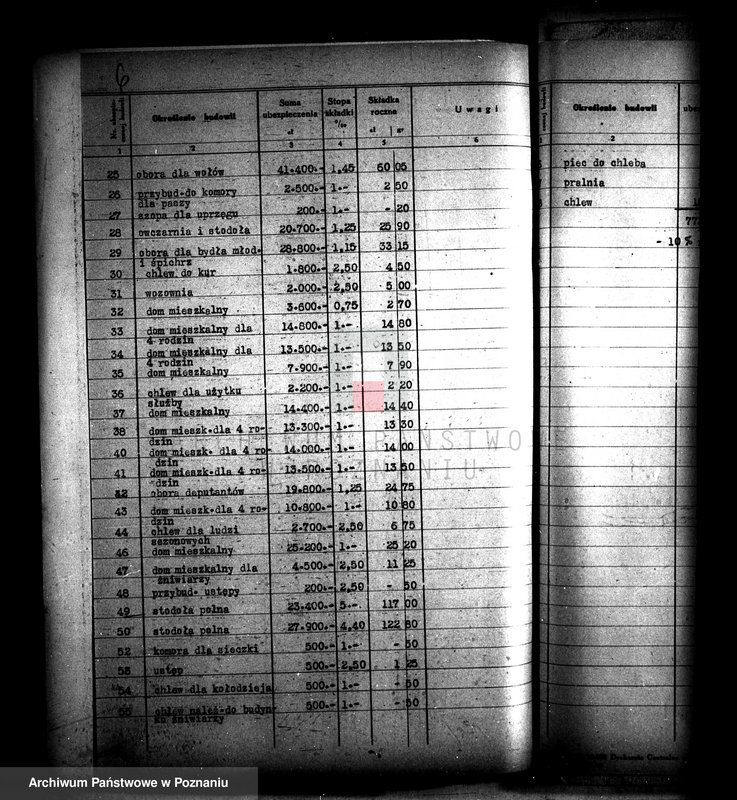 6
Określenie budowli
Suma ubezpieczenia zł
Stopa składki ‰
Składka roczna zł gr
Uwagi
1 2 3 4 5 6
25 obora dla wołów 41.400.- 1,45 60 05
26 przybud.do komory 2.500.- 1.- 2 50
dla paszy
27 szopa dla uprzęgu 200.- 1.- - 20
28 owczarnia i stodoła 20.700.- 1,25 25 90
29 obora dla bydła młod- 28.800.- 1,15 33 15
i śpichrz
30 chlew do kur 1.800.- 2,50 4 50
31 wozownia 2.000.- 2,50 5 00
32 dom mieszkalny 3.600.- 0,75 2 70
33 dom mieszkalny dla 14.800.- 1.- 14 80
4 rodzin
34 dom mieszkalny dla 13.500.- 1.- 13 50
4 rodzin
35 dom mieszkalny 7.900.- 1.- 7 90
36 chlew dla użytku 2.200.- 1.- 2 20
służby
37 dom mieszkalny 14.400.- 1.- 14 40
38 dom mieszk.dla 4 ro- 13.300.- 1.- 13 30
dzin
40 dom mieszk. dla 4 ro- 14.000.- 1.- 14 00
dzin
41 dom mieszk.dla 4 ro- 13.500.- 1.- 13 50
dzin
42 obora deputantów 19.800.- 1,25 24 75
43 dom mieszk.dla 4 ro- 10.800.- 1.- 10 80
dzin
44 chlew dla ludzi 2.700.- 2,50 6 75
sezonowych
46 dom mieszkalny 25.200.- 1.- 25 20
47 dom mieszkalny dla 4.500.- 2,50 11 25
żniwiarzy
48 przybud. ustępy 200.- 2,50 - 50
49 stodoła polna 23.400.- 5.- 117 00
50 stodoła polna 27.900.- 4,40 122 80
52 komora dla sieczki 500.- 1.- - 50
53 ustęp 500.- 2,50 1 25
54 chlew dla kołodzieja 500.- 1.- - 50
55 chlew należ.do budyn- 500.- 1.- - 50
ku żniwiarzy
Określenie budowli
2
piec do chleba
pralnia
chlew
- 10 %
ARCHIWUM PAŃSTWOWE
W POZNANIU
Archiwum Państwowe w Poznaniu